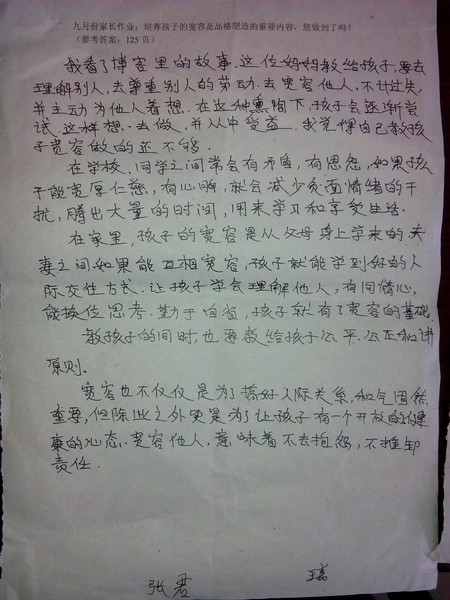 九月份家长作业：培养孩子的宽容是品格塑造的重要内容，您做到了吗？
（参考答案：125页）
我看了博客里的故事.这位妈妈教给孩子,要去
理解别人,去尊重别人的劳动.去宽容他人,不计过失,
并主动为他人着想.在这种熏陶下,孩子会逐渐尝
试.这样想.去做.并从中受益.我觉得自己教孩
子宽容做的还不够.
在学校,同学之间常会有矛盾,有恩怨,如果孩
子能宽厚仁慈,有心胸,就会减少负面情绪的干
扰,腾出大量的时间,用来学习和享受生活.
在家里,孩子的宽容是从父母身上学来的.夫
妻之间如果能互相宽容,孩子就能学到好的人
际交往方式.让孩子学会理解他人,有同情心,
能换位思考.勤于自省,孩子就有了宽容的基础.
教孩子的同时,也要教给孩子公平.公正和讲
原则.
宽容也不仅仅是为了搞好人际关系,和气固然
重要,但除此之外更是为了让孩子有一个开放的健
康的心态.宽容他人,意味着不去抱怨,不推卸
责任.
张君 瑶